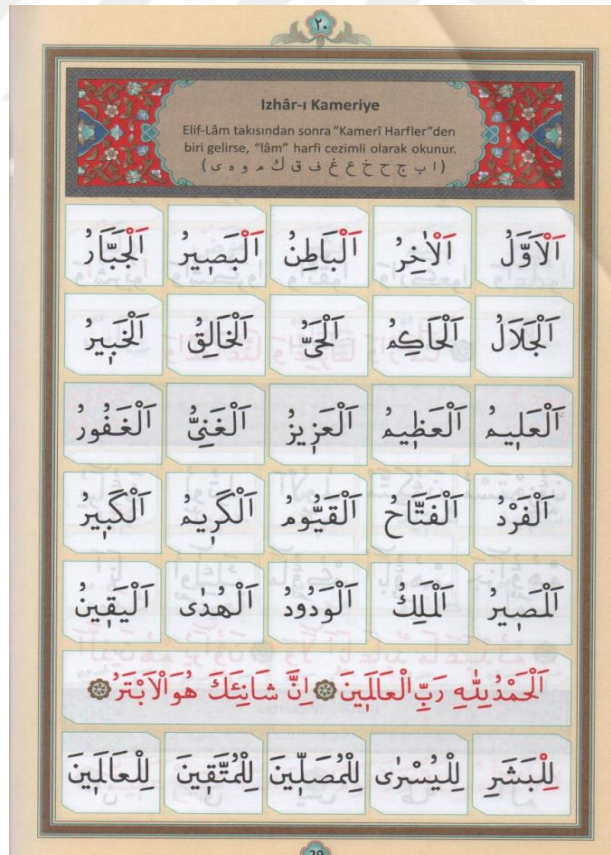 ٢٠
Izhâr-ı Kameriye
Elif-Lâm takısından sonra "Kamerî Harfler"den
biri gelirse, "lâm" harfi cezimli olarak okunur.
( ا ب ج ح خ ع غ ف ق ك م و ه ى )
اَلْاَوَّلُ اَلْاٰخِرُ اَلْبَاطِنُ اَلْبَصٖيرُ اَلْجَبَّارُ
اَلْجَلَالُ اَلْحَاكِمُ اَلْحَىُّ اَلْخَالِقُ اَلْخَبٖيرُ
اَلْعَلٖيمُ اَلْعَظٖيمُ اَلْعَزٖيزُ اَلْغَنِىُّ اَلْغَفُورُ
اَلْفَرْدُ اَلْفَتَّاحُ اَلْقَيُّومُ اَلْكَرٖيمُ اَلْكَبٖيرُ
اَلْمَصٖيرُ اَلْمَلِكُ اَلْوَدُودُ اَلْهُدٰى اَلْيَقٖينُ
اَلْحَمْدُ لِلّٰهِ رَبِّ الْعَالَمٖينَ ۞ اِنَّ شَانِئَكَ هُوَ الْاَبْتَرُ ۞
لِلْبَشَرِ لِلْيُسْرٰى لِلْمُصَلّٖينَ لِلْمُتَّقٖينَ لِلْعَالَمٖينَ
20